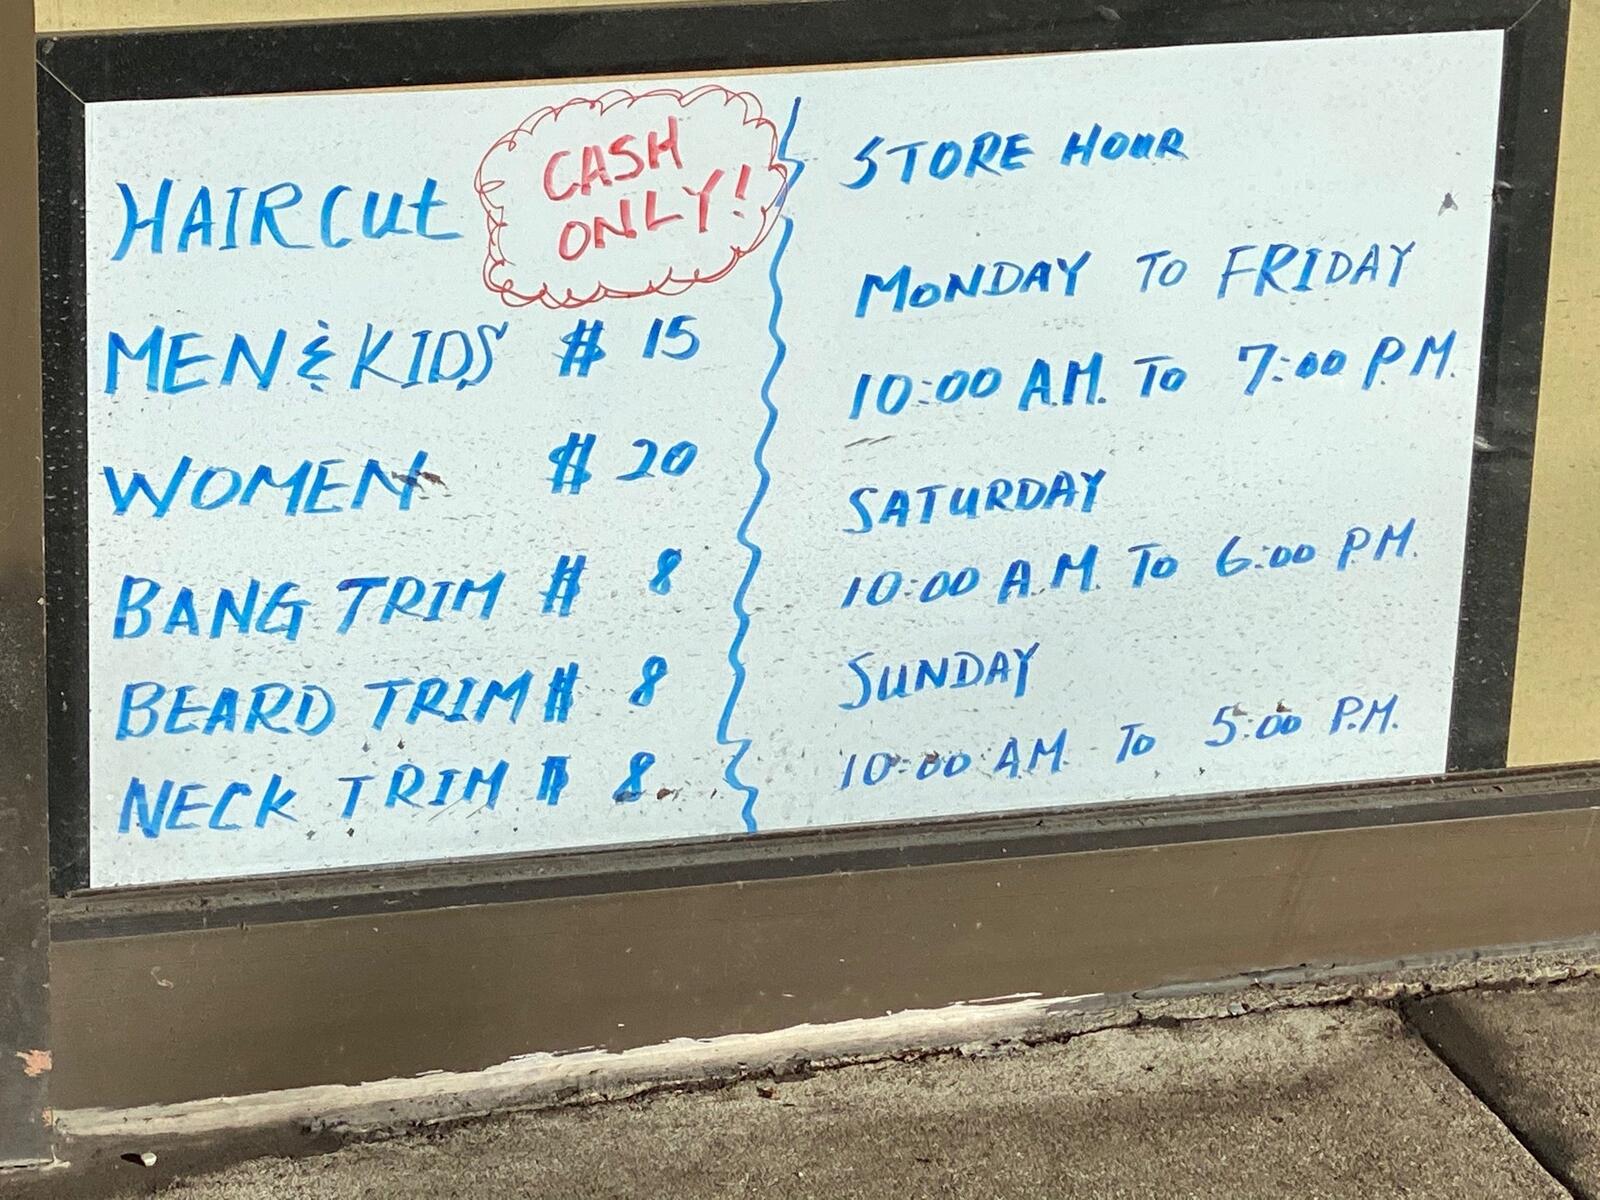 HAIRCut
CASH
ONLY!
MEN & KIDS $ 15
WOMEN $ 20
BANG TRIM $ 8
BEARD TRIM $ 8
NECK TRIM $ 8
STORE HOUR
MONDAY TO FRIDAY
10:00 A.M. To 7:00 P.M.
SATURDAY
10:00 A.M. To 6:00 P.M.
SUNDAY
10:00 A.M. To 5:00 P.M.